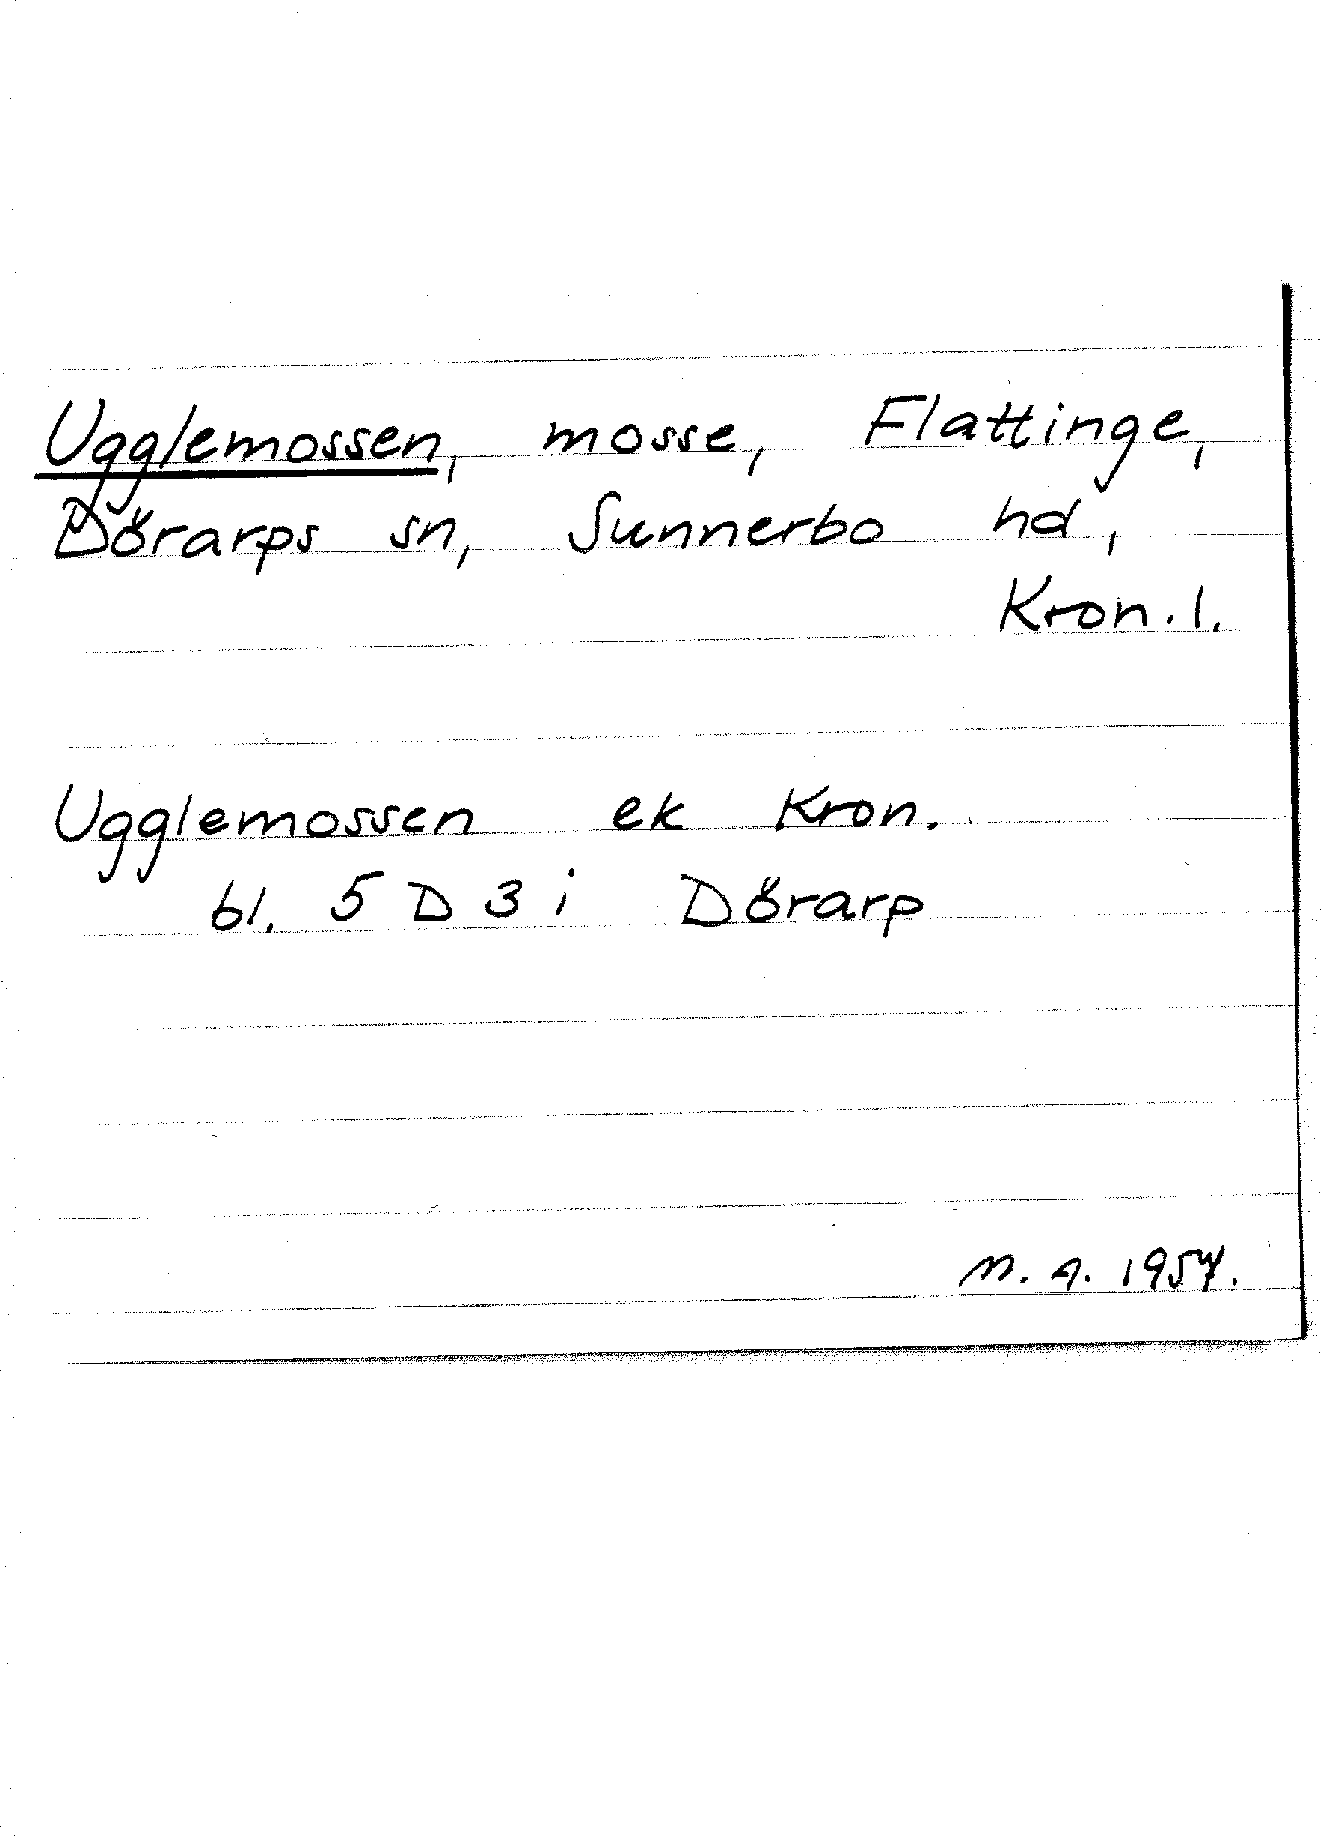 Ugglemossen, mosse, Flattinge,
Dörarps sn, Sunnerbo hd,
Kron. l.
Ugglemossen ek Kron.
bl. 5 D 3 i Dörarp
M. A. 1954.